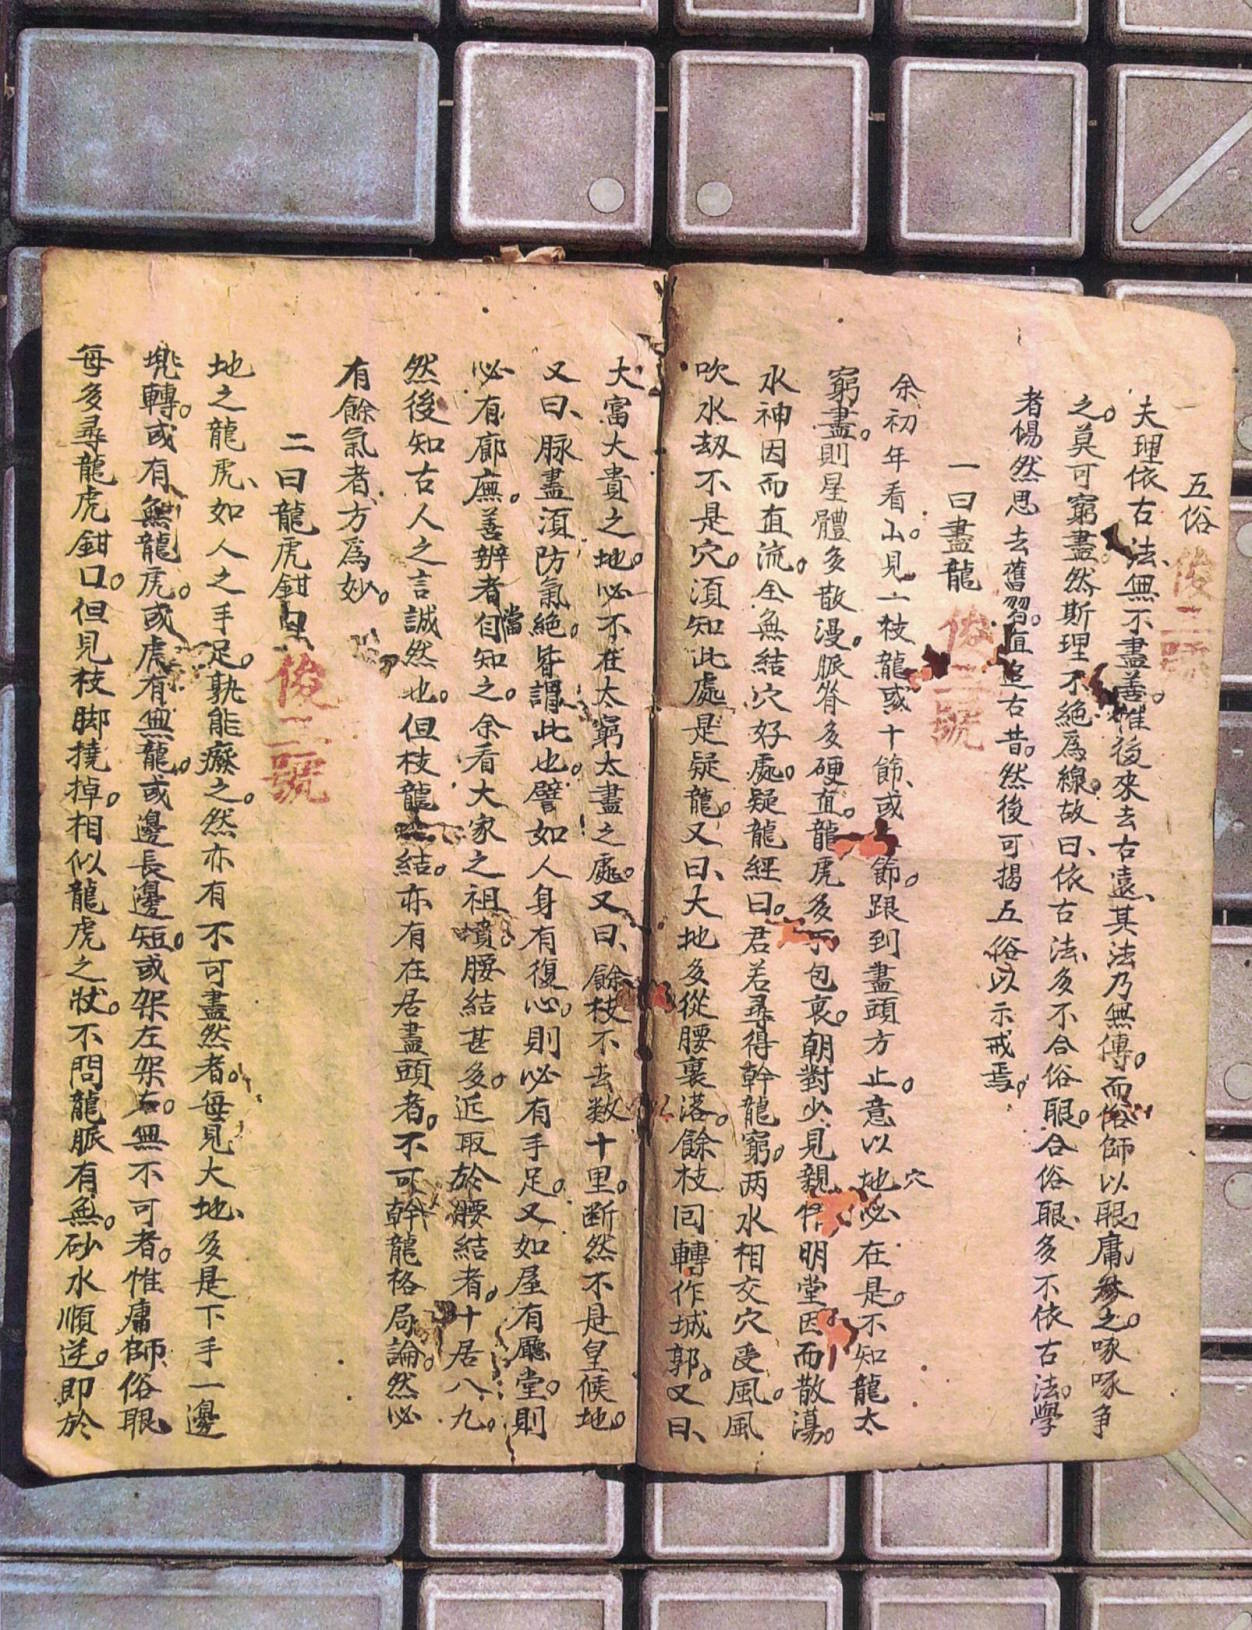 五俗
夫理依古法無不盡善惟後來去古遠其法乃無傳。而俗師以眼庸參之。啄啄爭
之。莫可窮盡。然斯理不絕為線。故曰、依古法多不合俗眼。合俗眼、多不依古法。學
者惕然思去舊習。直追古昔。然後可揭五俗以示戒焉。
一曰盡龍
余初年看山。見一枝龍或十節、或節。跟到盡頭方止。意以地穴必在是。不知龍太
窮盡。則星體多散漫。脈脊多硬直。龍虎多不包裹。朝對少見親。明堂因而散蕩。
水神因而直流。全無結穴好處。疑龍經曰。君若尋得幹龍窮。两水相交穴受風。風
吹水劫不是穴。須知此處是疑龍。又曰、大地多從腰裏落。餘枝囘轉作城郭。又曰、
大富大貴之地。必不在太窮太盡之處。又曰、餘枝不去数十里。断然不是皇候地。
又曰、脉盡湏防氣絕。皆謂此也。譬如人身有復心。則必有手足。又如屋有廳堂。則
必有廊廡。善辦者當自知之。余看大家之祖墳。腰結甚多。近取於腰結者。十居八九。
然後知古人之言誠然也。但枝龍結。亦有在居盡頭者。不可幹龍格局論。然必
有餘氣者方為妙。
二曰龍虎鉗口
地之龍虎、如人之手足。孰能癈之。然亦有不可盡然者。每見大地、多是下手一邊
兠轉。或有無龍虎。或虎有無龍。或邊長邊短。或架左架右。無不可者。惟庸師俗眼
每多尋龍虎鉗口。但見枝脚撓掉。相似龍虎之狀。不問龍脈有無。砂水順逆。即於
俊二號
俊二號
俊二號